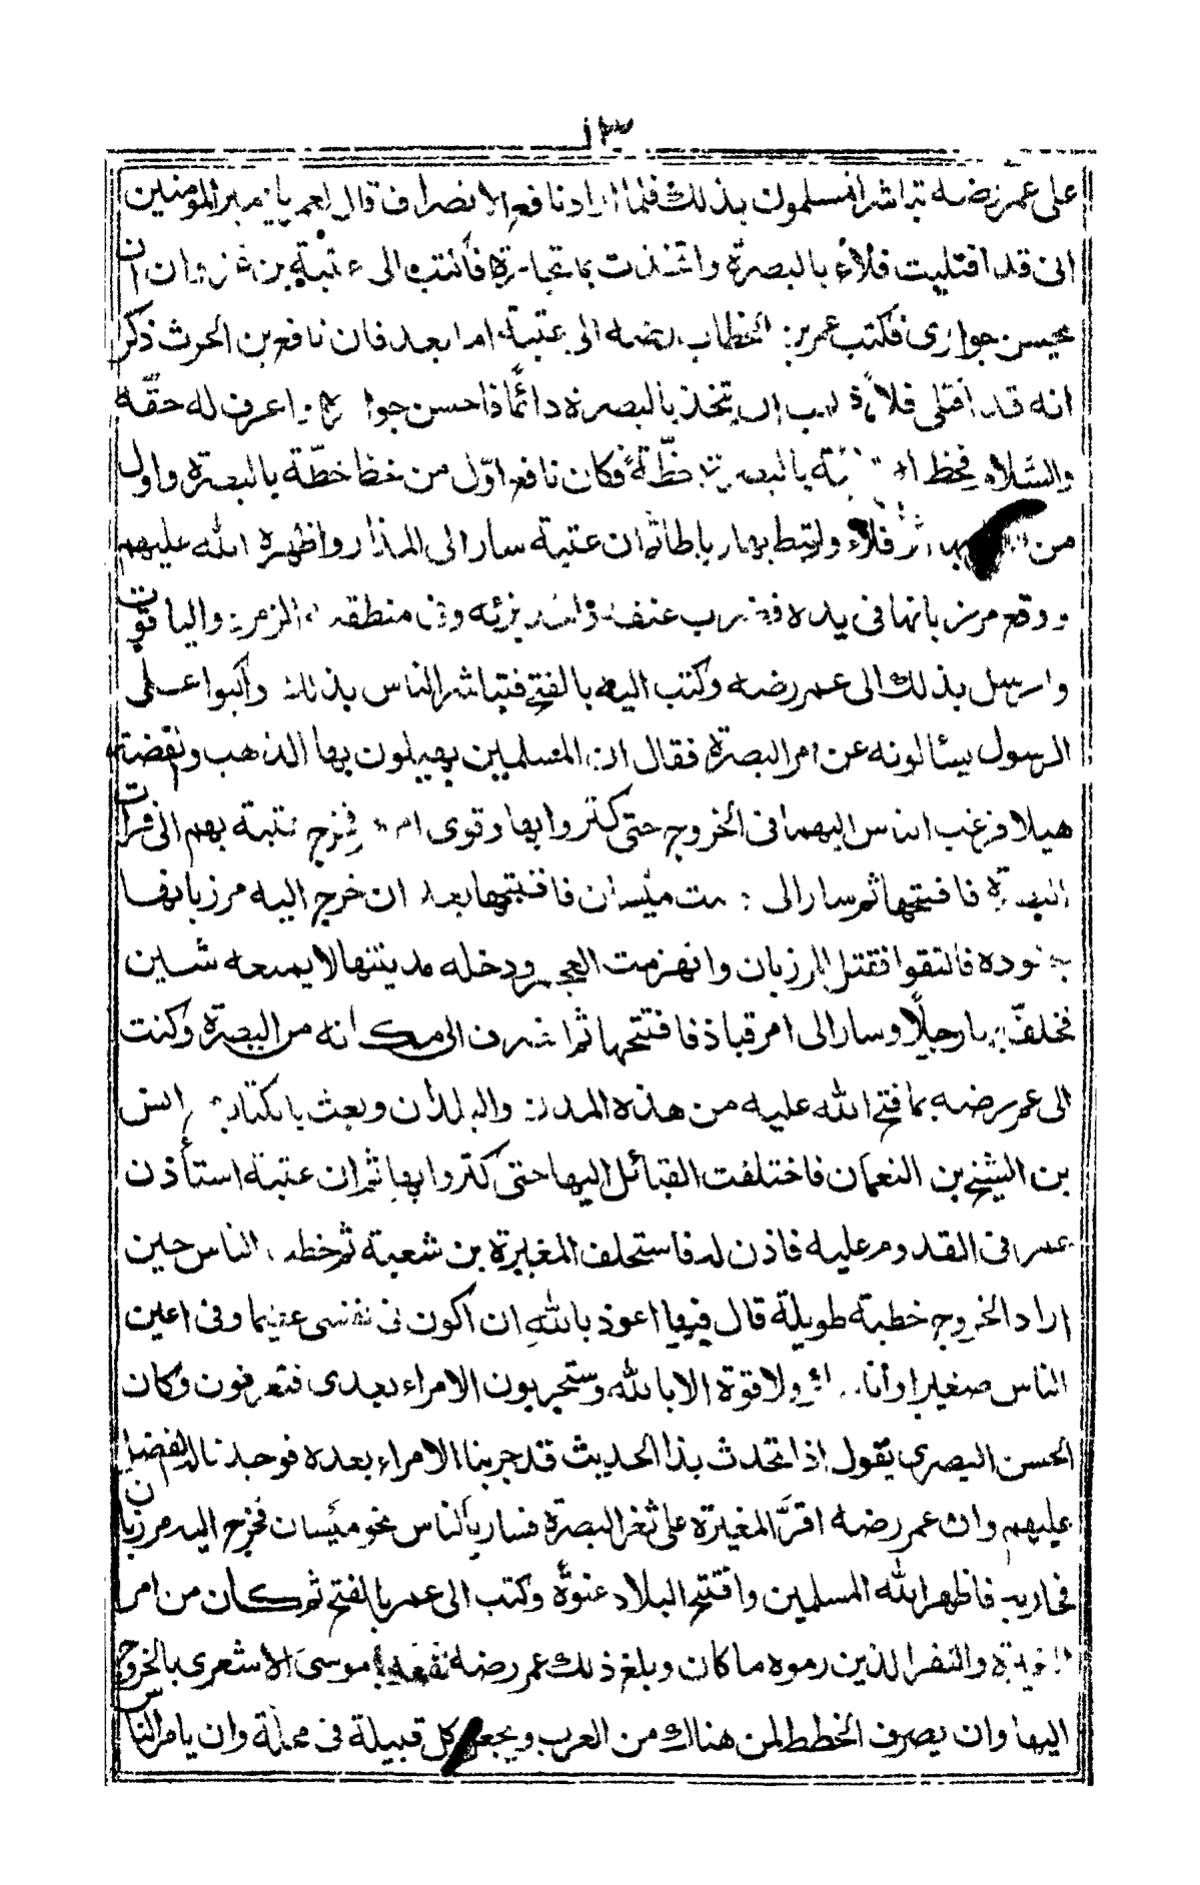 ١٣٠
على عمر رضه تباشر المسلمون بذلك فلما اراد نافع الانصراف قال لعمر يا امير المؤمنين
انى قد افتليت فلاء بالبصرة واتخذت بها تجارة فاكتب الى عتبة بن غزوان ان
يحسن جوارى فكتب عمر بن الخطاب رضه الى عتبة اما بعد فان نافع بن الحرث ذكر
انه قد افتلى فلاء واحب ان يتخذ بالبصرة دائما فاحسن جوا واعرف له حقه
والسلام فخط له عتبة بالبصرة خطّة فكان نافع اوّل من خط خطّة بالبصرة واول
من فلاء وارتبط بها رباطا ثم ان عتبة سار الى المذار واظهره الله عليهم
ووقع مرزبانها فى يده فضرب عنقه وفى منطقته الزمرد والياقوت
وارسل بذلك الى عمر رضه وكتب اليه بالفتح فتباشر الناس بذلك وأكبوا على
الرسول يسألونه عن امر البصرة فقال ان المسلمين يهيلون بها الذهب والفضة
هيلا فرغب الناس اليهما فى الخروج حتى كثروا بها وقوى امره فخرج عتبة بهم الى فرات
البصرة فافتتحها ثم سار الى دست ميسان فافتتحها بعد ان خرج اليه مرزبانها
بجنوده فالتقوا فقتل المرزبان وانهزمت العجم ودخله مدينتها لا يمنعه شئ
فخلف بها رجلا وسار الى ابرقباذ فافتتحها ثم انصرف الى مكانه من البصرة وكتب
الى عمر رضه بما فتح الله عليه من هذه المدن والبلدان وبعث بالكتاب انس
بن الشيخ بن النعمان فاختلفت القبائل اليها حتى كثروا بها ثم ان عتبة استأذن
عمر فى القدوم عليه فاذن له فاستخلف المغيرة بن شعبة ثم خطب الناس حين
اراد الخروج خطبة طويلة قال فيها اعوذ بالله ان اكون فى نفسى عظيما وفى اعين
الناس صغيرا وأنا ولا قوة الا بالله وستجربون الامراء بعدى فتعرفون وكان
الحسن البصرى يقول اذا تحدث بذا الحديث قد جربنا الامراء بعده فوجدنا له الفضل
عليهم وان عمر رضه اقرّ المغيرة على ثغر البصرة فسار بالناس نحو ميسان فخرج اليه مرزبان
فحاربه فاظهر الله المسلمين وافتتح البلاد عنوة وكتب الى عمر بالفتح ثم كان من امر
المغيرة والنفر الذين رموه ما كان وبلغ ذلك عمر رضه ابا موسى الاشعرى بالخروج
اليها وان يصرف الخطط لمن هناك من العرب ويجعل كل قبيلة فى محلة وان يامر الناس